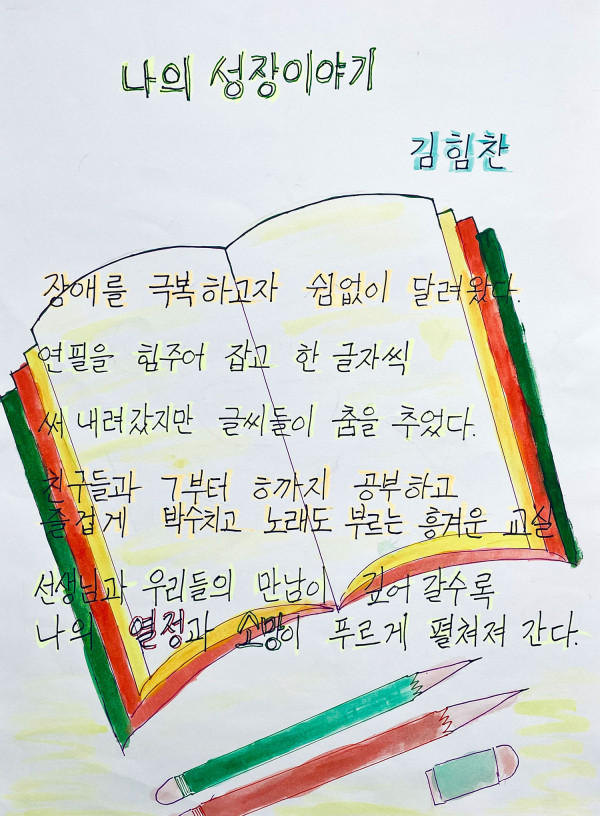 나의 성장이야기
김힘찬
장애를 극복하고자 쉼없이 달려왔다.
연필을 힘주어 잡고 한 글자씩
써 내려갔지만 글씨들이 춤을 추었다.
친구들과 ㄱ부터 ㅎ까지 공부하고
즐겁게 박수치고 노래도 부르는 흥겨운 교실
선생님과 우리들의 만남이 깊어 갈수록
나의 열정과 소망이 푸르게 펼쳐져 간다.